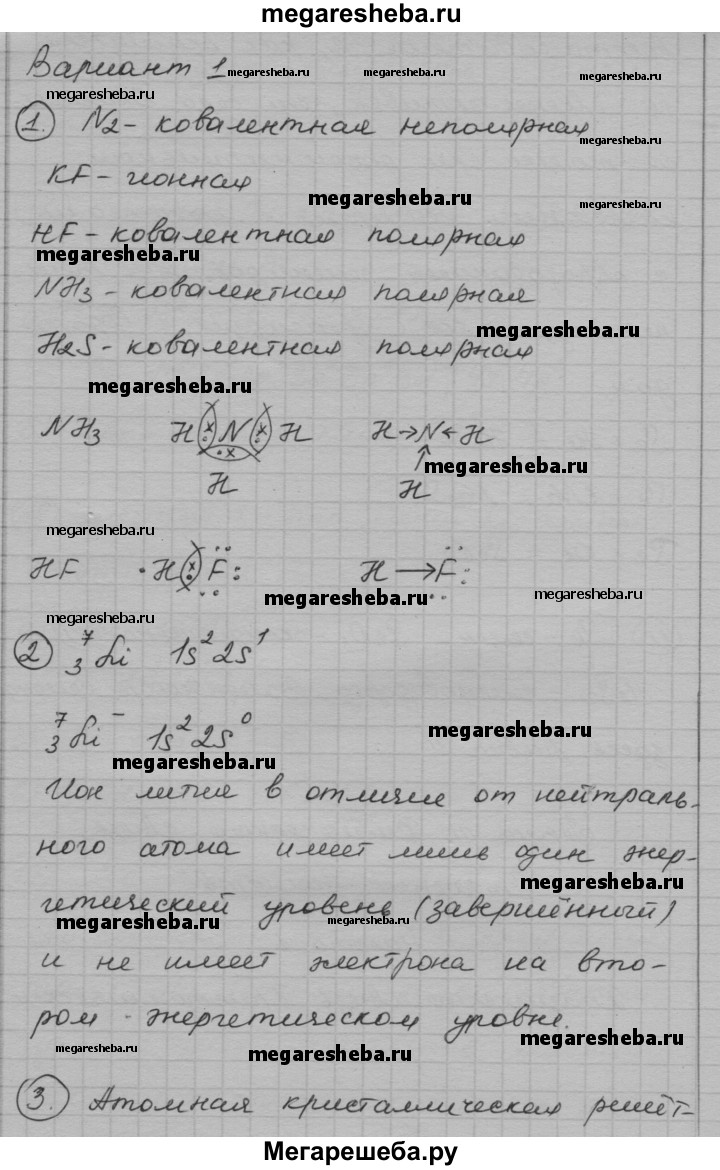 megaresheba.ru
Вариант 1 megaresheba.ru megaresheba.ru megaresheba.ru
megaresheba.ru
1. N2 - ковалентная неполярная megaresheba.ru
KF - ионная megaresheba.ru megaresheba.ru
HF - ковалентная полярная
megaresheba.ru
NH3 - ковалентная полярная
megaresheba.ru
H2S - ковалентная полярная
megaresheba.ru
NH3 H N H H→N←H
megaresheba.ru
H ↑ H
megaresheba.ru
HF ·H F: H→F:
megaresheba.ru megaresheba.ru
megaresheba.ru
2 ⁷₃Li 1s² 2s¹
⁷₃Li⁻ 1s² 2s⁰ megaresheba.ru
megaresheba.ru
Ион лития в отличие от нейтраль-
ного атома имеет лишь один энер-
megaresheba.ru
гетический уровень (завершённый)
megaresheba.ru megaresheba.ru
и не имеет электрона на вто-
ром энергетическом уровне.
megaresheba.ru megaresheba.ru megaresheba.ru
3. Атомная кристаллическая решёт-
Мегарешеба.ру